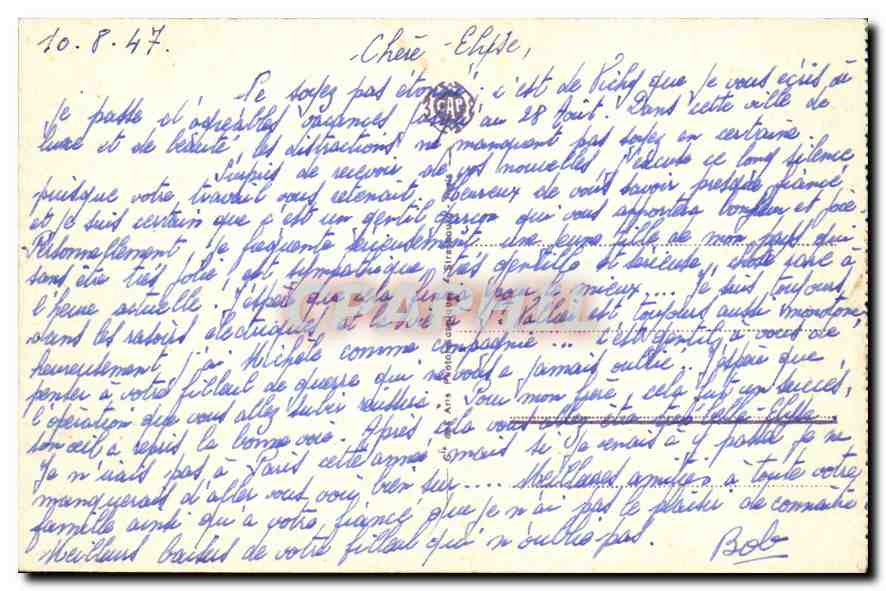 10.8.47.
Chère Elyse,
Ne soyez pas étonnée : c'est de Vichy que je vous écris où
je passe d'agréables vacances jusqu'au 28 Août. Dans cette ville de
luxe et de beauté, les distractions ne manquent pas soyez en certaine.
CAP
Surpris de recevoir de vos nouvelles, j'excuse ce long silence
puisque votre travail vous retenait. Heureux de vous savoir presque fiancé
et je suis certain que c'est un gentil garçon qui vous apportera bonheur et joie
Personnellement je fréquente sérieusement une jeune fille de mon pays qui
sans être très jolie est sympathique, très gentille et sérieuse, chose rare à
l'heure actuelle. J'espère que cela finira pour le mieux.... Je suis toujours
dans les rasoirs électriques et la vie à est toujours aussi monotone
heureusement, j'ai Michèle comme compagnie... C'est gentil à vous de
penser à votre filleul de guerre qui ne vous a jamais oublié... J'espère que
l'opération que vous allez subir réussira. Pour mon frère, cela fut un succès,
son œil a repris la bonne voie. Après cela vous allez être très belle Elyse.
Je n'irais pas à Paris cette année mais si je venais à y passer je ne
manquerais d'aller vous voir bien sur.... Meilleures amitiés à toute votre
famille ainsi qu'à votre fiancé que je n'ai pas le plaisir de connaître
Meilleurs baisers de votre filleul qui n'oublie pas.
Bob